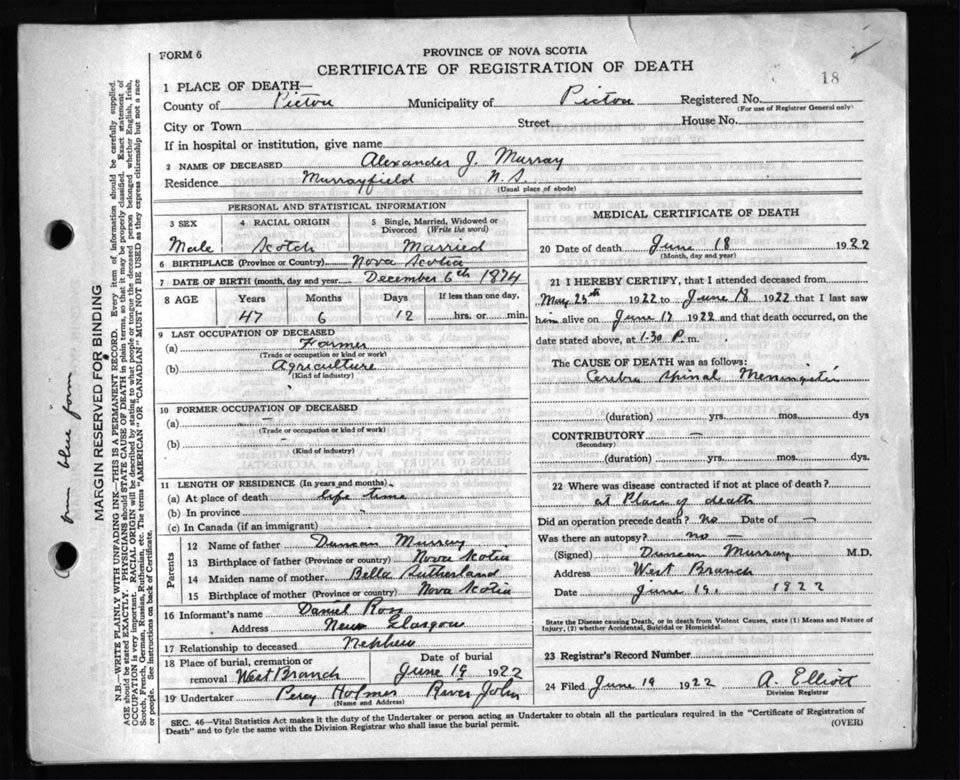 FORM 6
PROVINCE OF NOVA SCOTIA
CERTIFICATE OF REGISTRATION OF DEATH
18
1 PLACE OF DEATH—
County of Pictou Municipality of Pictou Registered No.
(For use of Registrar General only)
City or Town Street House No.
If in hospital or institution, give name
2 NAME OF DECEASED Alexander J. Murray
Residence Murrayfield N.S.
(Usual place of abode)
PERSONAL AND STATISTICAL INFORMATION
3 SEX 4 RACIAL ORIGIN 5 Single, Married, Widowed or Divorced (Write the word)
Male Scotch Married
6 BIRTHPLACE (Province or Country) Nova Scotia
7 DATE OF BIRTH (month, day and year) December 6th 1874
8 AGE Years Months Days If less than one day,
47 6 12 hrs. or min.
9 LAST OCCUPATION OF DECEASED
(a) Farmer
(Trade or occupation or kind or work)
(b) Agriculture
(Kind of industry)
10 FORMER OCCUPATION OF DECEASED
(a) —
(Trade or occupation or kind of work)
(b) —
(Kind of industry)
11 LENGTH OF RESIDENCE (In years and months)
(a) At place of death life time
(b) In province
(c) In Canada (if an immigrant)
Parents
12 Name of father Duncan Murray
13 Birthplace of father (Province or country) Nova Scotia
14 Maiden name of mother Bella Sutherland
15 Birthplace of mother (Province or country) Nova Scotia
16 Informant's name Daniel Ross
Address New Glasgow
17 Relationship to deceased Nephew
18 Place of burial, cremation or Date of burial
removal West Branch June 19 1922
19 Undertaker Percy Holmes River John
(Name and Address)
MEDICAL CERTIFICATE OF DEATH
20 Date of death June 18 1922
(Month, day and year)
21 I HEREBY CERTIFY, that I attended deceased from
May 25th 1922 to June 18 1922 that I last saw
him alive on June 17 1922 and that death occurred, on
date stated above, at 1-30 P. m.
The CAUSE OF DEATH was as follows:
Cerebro Spinal Meningitis
(duration) yrs. mos. dys
CONTRIBUTORY —
(Secondary)
(duration) yrs. mos. dys.
22 Where was disease contracted if not at place of death?
at Place of death
Did an operation precede death? No Date of —
Was there an autopsy? no —
(Signed) Duncan Murray M.D.
Address West Branch
Date June 19, 1922
State the Disease causing Death, or in death from Violent Causes, state (1) Means and Nature of
Injury, (2) whether Accidental, Suicidal or Homicidal.
23 Registrar's Record Number
24 Filed June 19 1922 A. Elliott
Division Registrar
SEC. 46—Vital Statistics Act makes it the duty of the Undertaker or person acting as Undertaker to obtain all the particulars required in the "Certificate of Registration of
Death" and to fyle the same with the Division Registrar who shall issue the burial permit. (OVER)
from blue form
MARGIN RESERVED FOR BINDING
N.B.—WRITE PLAINLY WITH UNFADING INK—THIS IS A PERMANENT RECORD. Every item of information should be carefully supplied.
AGE should be stated EXACTLY. PHYSICIANS should STATE CAUSE OF DEATH in plain terms, so that it may be properly classified. Exact statement of
OCCUPATION is very important. RACIAL ORIGIN will be described by stating to what people or tongue the deceased person belonged whether English, Irish,
Scotch, French, German, Russian, Ruthenian, etc. The terms "AMERICAN" or "CANADIAN" MUST NOT BE USED as they express citizenship but not a race
or people. See instructions on back of Certificate.